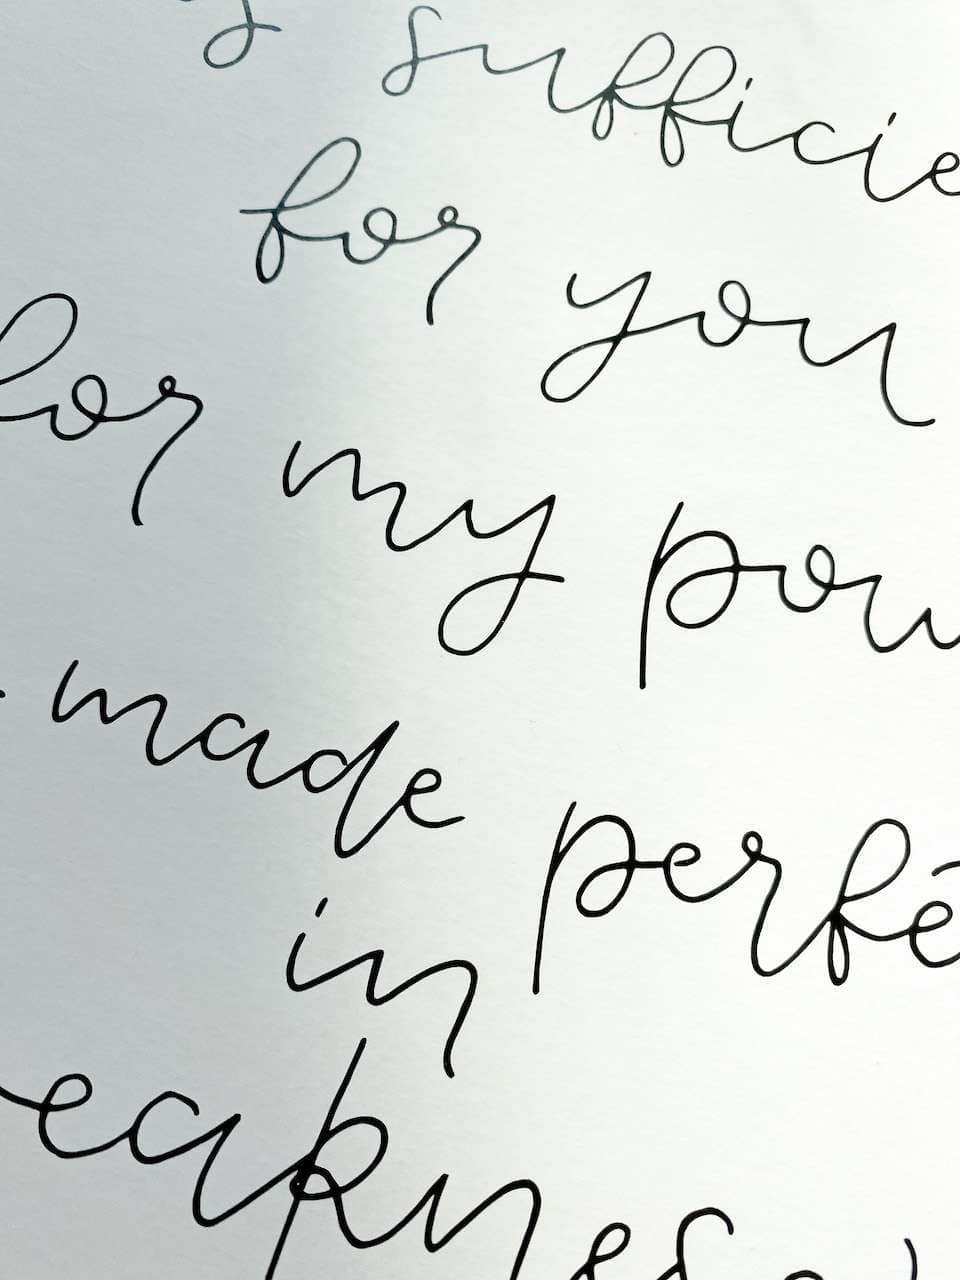 sufficie
for you
for my pow
made perfe
in
eaknes